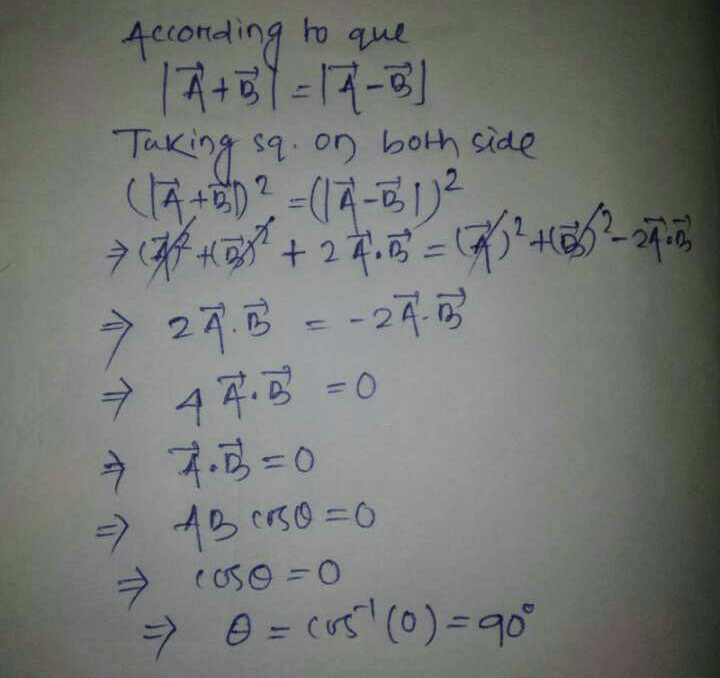 According to que
|A⃗+B⃗| = |A⃗-B⃗|
Taking sq. on both side
(|A⃗+B⃗|)² = (|A⃗-B⃗|)²
⇒ (A⃗)² + (B⃗)² + 2A⃗.B⃗ = (A⃗)² + (B⃗)² - 2A⃗.B⃗
⇒ 2A⃗.B⃗ = -2A⃗.B⃗
⇒ 4A⃗.B⃗ = 0
⇒ A⃗.B⃗ = 0
⇒ AB cosθ = 0
⇒ cosθ = 0
⇒ θ = cos⁻¹(0) = 90°